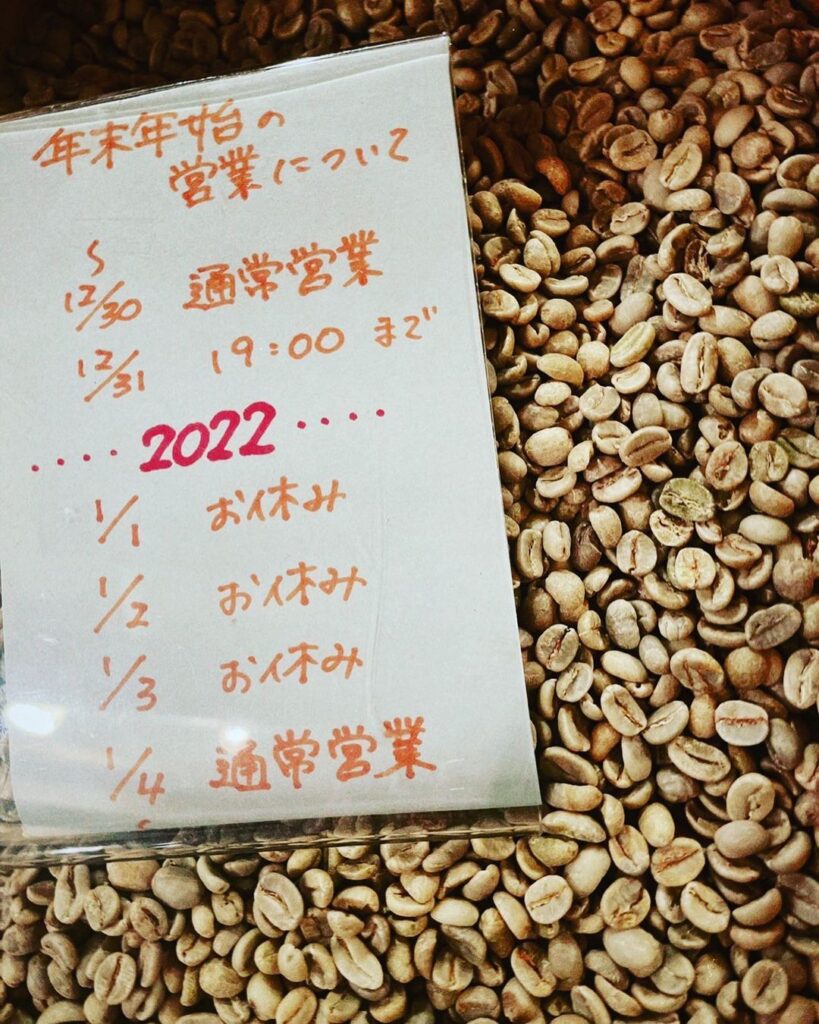 年末年始の
営業について
〜
12/30 通常営業
12/31 19:00 まで
....2022....
1/1 お休み
1/2 お休み
1/3 お休み
1/4 通常営業